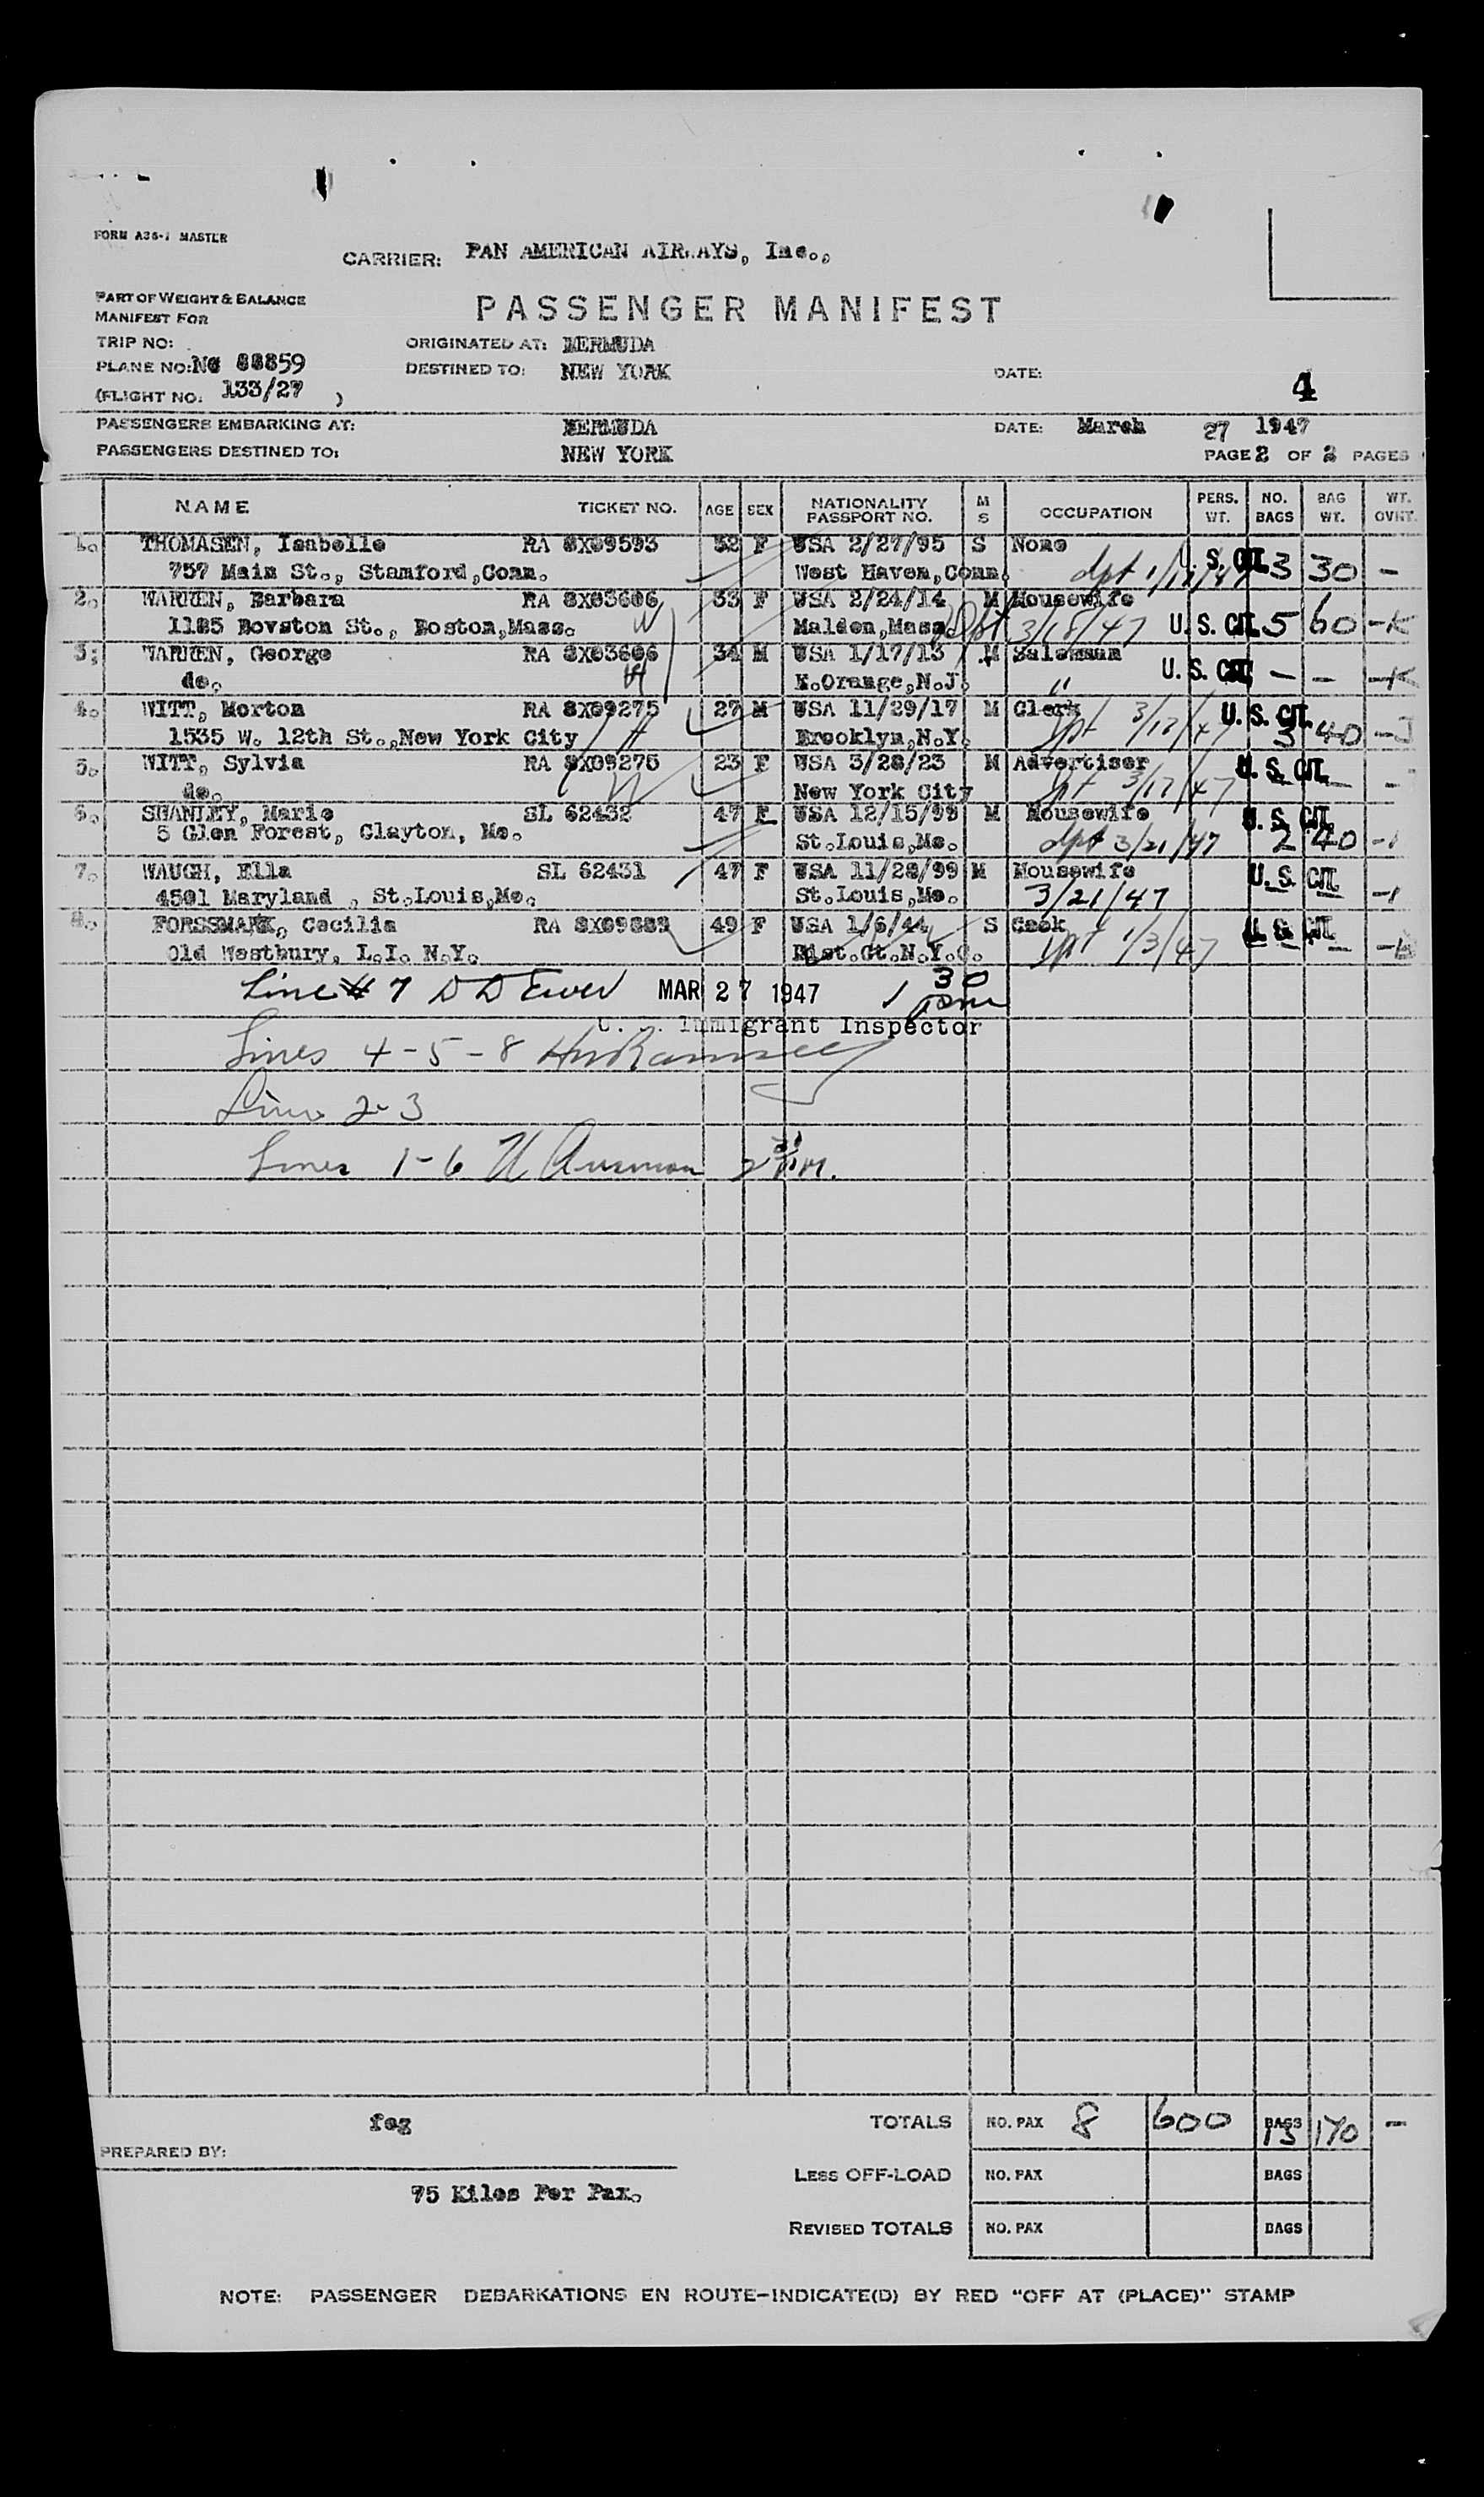 FORM A36-1 MASTER
CARRIER: PAN AMERICAN AIRWAYS, Inc.,
PART OF WEIGHT & BALANCE
MANIFEST FOR
PASSENGER MANIFEST
TRIP NO:
ORIGINATED AT: BERMUDA
PLANE NO: NC 88859
DESTINED TO: NEW YORK
DATE:
4
(FLIGHT NO. 133/27 )
PASSENGERS EMBARKING AT: BERMUDA DATE: March 27 1947
PASSENGERS DESTINED TO: NEW YORK PAGE 2 OF 2 PAGES
NAME TICKET NO. AGE SEX NATIONALITY PASSPORT NO. M S OCCUPATION PERS. WT. NO. BAGS BAG WT. WT. OVHT.
1. THOMASEN, Isabelle RA 8X09593 52 F USA 2/27/95 S None U. S. CIT. 3 30 -
757 Main St., Stamford,Conn. West Haven,Conn. dpt
2. WARREN, Barbara RA 8X03606 33 F USA 2/24/14 M Housewife U. S. CIT. 5 60 - K
St., Boston,Mass. Malden,Mass. dpt 3/18/47
3; WARREN, George RA 8X03606 34 M USA 1/17/13 M Salesman U. S. CIT. - - - K
do. E.Orange,N.J. "
4. WITT, Morton RA 8X09275 27 M USA 11/29/17 M Clerk U. S. CIT. 3 40 - J
1535 W. 12th St.,New York City Brooklyn,N.Y. dpt 3/12/47
5. WITT, Sylvia RA 8X09275 23 F USA 3/28/23 M Advertiser U. S. CIT. - - -
do. New York City dpt 3/12/47
6. SHANLEY, Marie SL 62432 47 F USA 12/15/99 M Housewife U. S. CIT. 2 40 -
5 Glen Forest, Clayton, Mo. St.Louis,Mo. dpt 3/21/47
7. WAUGH, Ella SL 62431 47 F USA 11/28/99 M Housewife U. S. CIT. - - -
4501 Maryland , St.Louis,Mo. St.Louis,Mo. 3/21/47
8. FORSSMARK, Cecilia RA 8X09888 49 F USA 1/6/44 S Cook U. S. CIT. - - -
Old Westbury, L.I. N.Y. Dist.Ct.N.Y.C. dpt 1/3/47
Line # 7 MAR 27 1947 1 30 pm
Immigrant Inspector
Lines 4-5-8
Lines 2-3
Lines 1-6
feg TOTALS NO. PAX 8 600 BAGS 13 170 -
PREPARED BY:
LESS OFF-LOAD NO. PAX BAGS
75 Kilos Per Pax.
REVISED TOTALS NO. PAX BAGS
NOTE: PASSENGER DEBARKATIONS EN ROUTE-INDICATE(D) BY RED "OFF AT (PLACE)" STAMP